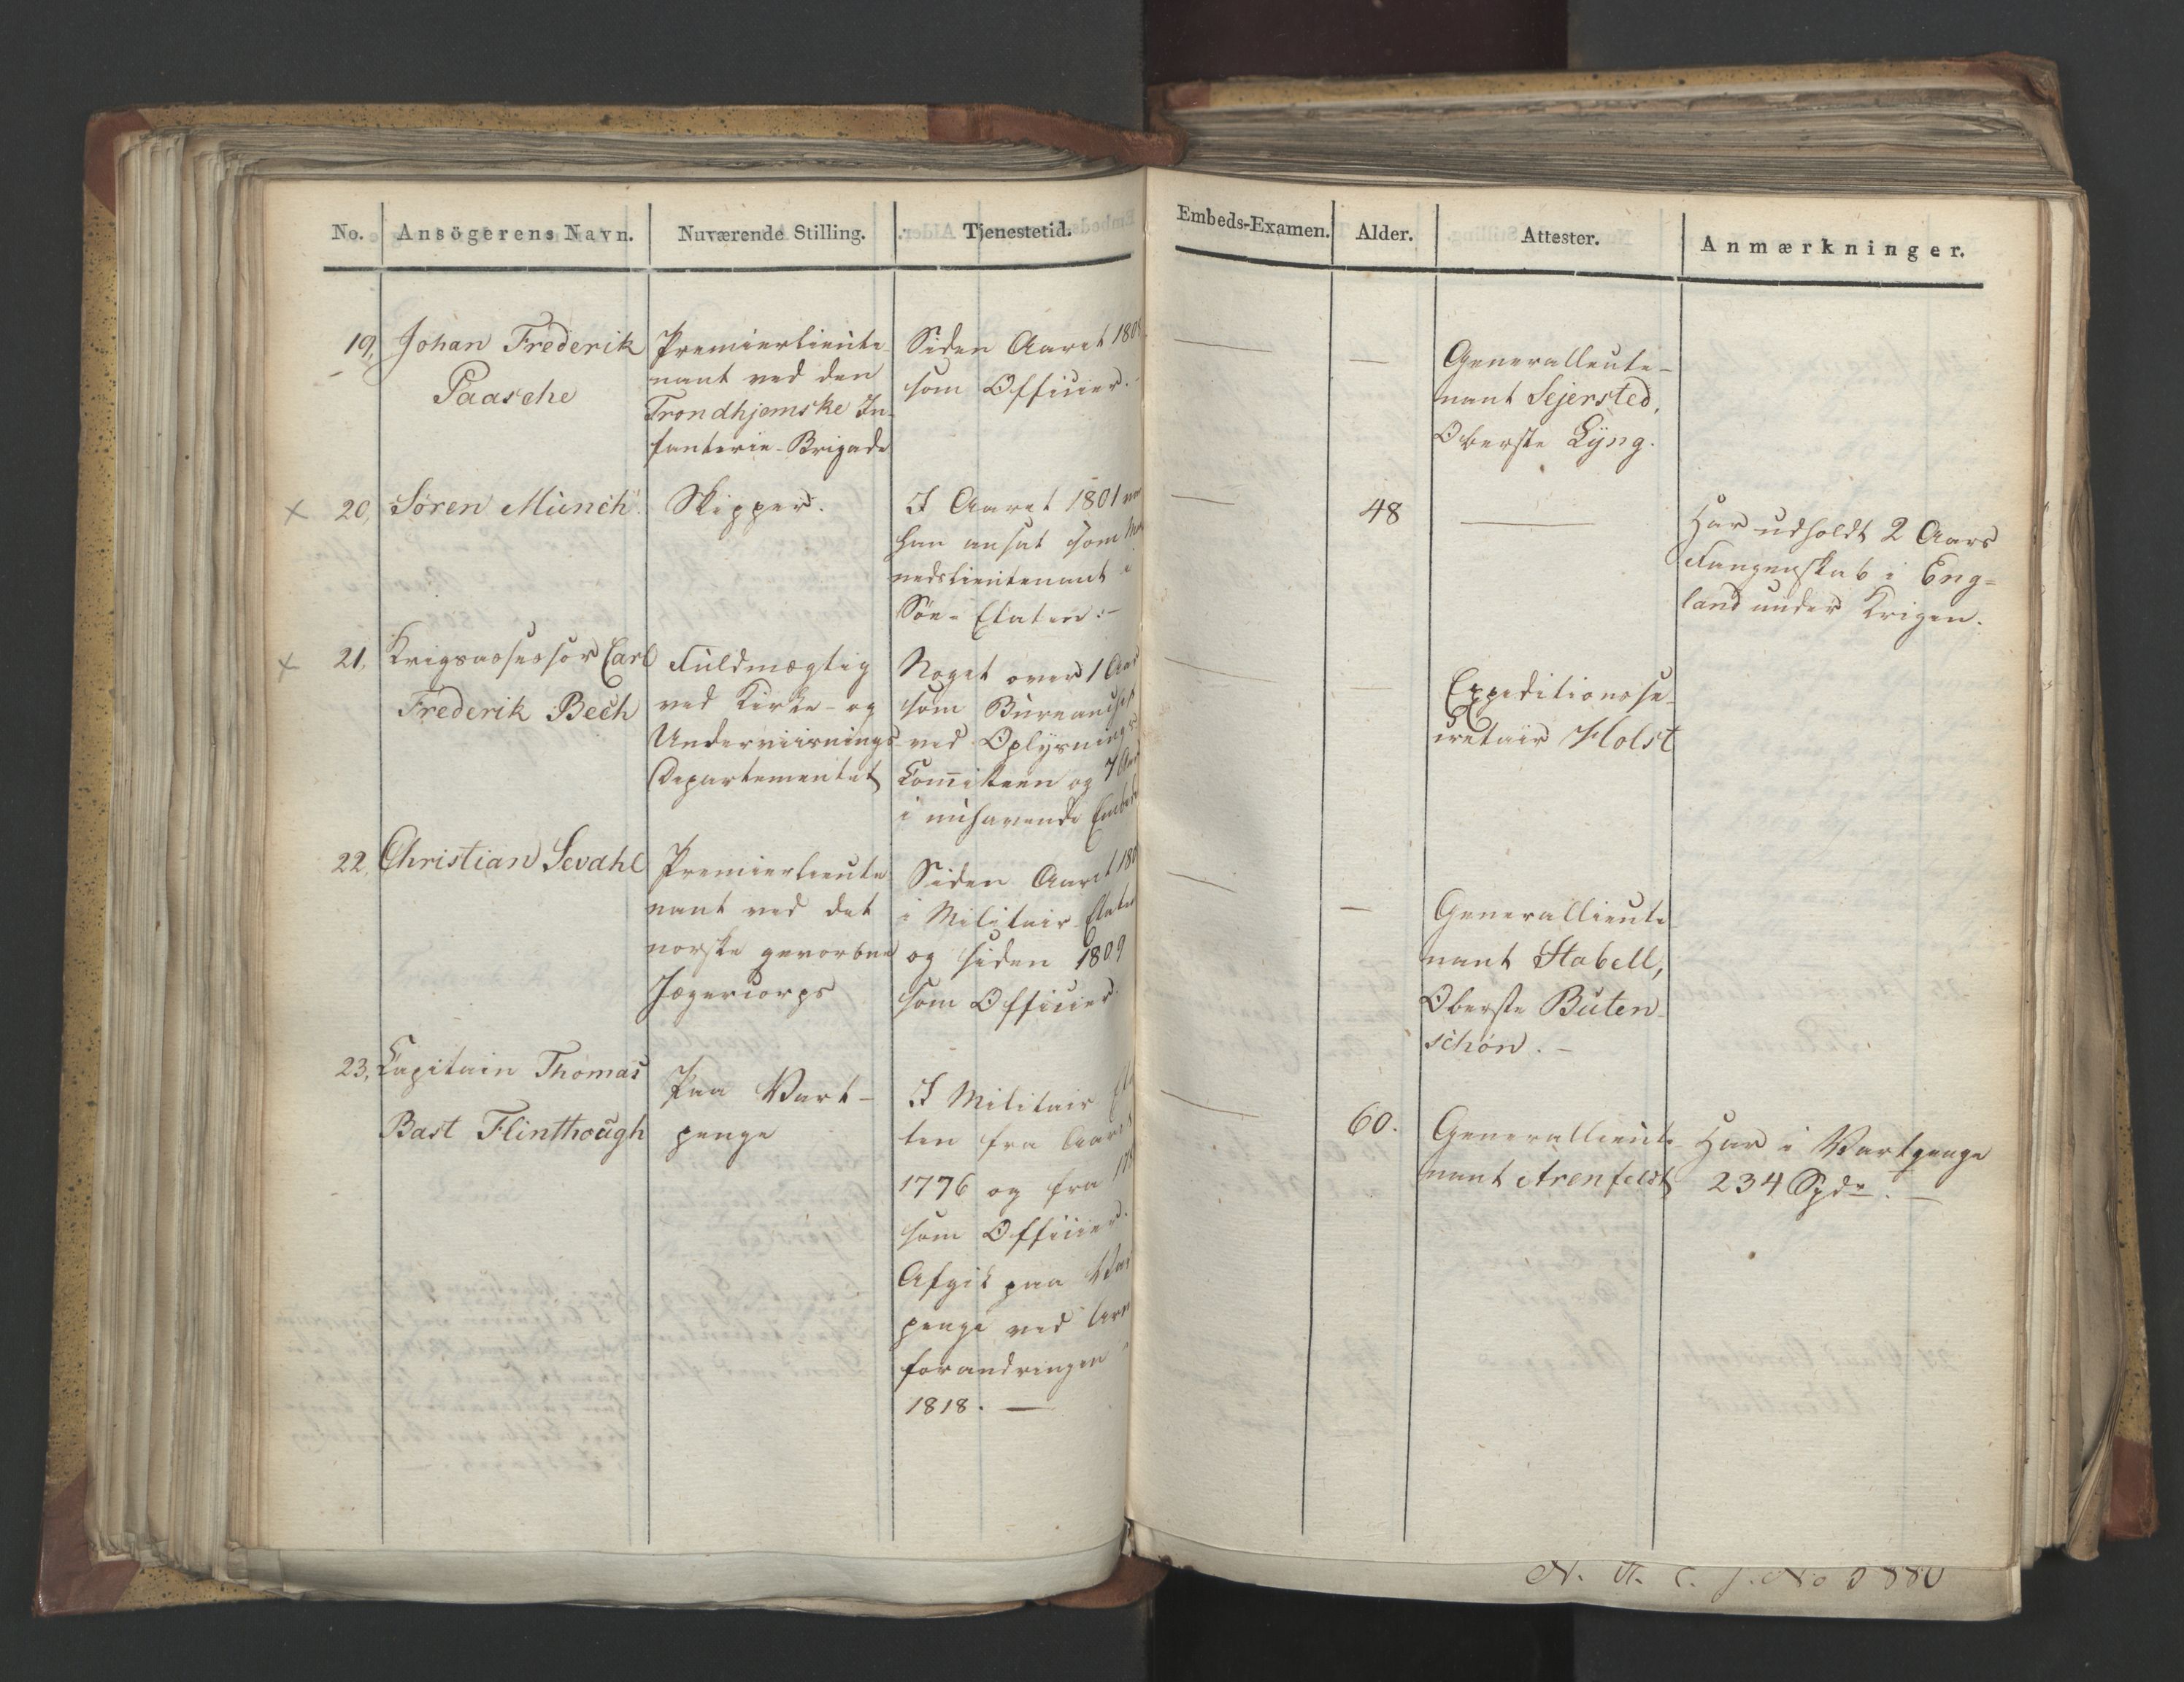 No. Ansögerens Navn. Nuværende Stilling. Tjenestetid. Embeds-Examen. Alder. Attester. Anmærkninger.
19, Johan Frederik
Paasche
Premierlieute-
nant ved den
Trondhjemske In-
fanterie-Brigade
Siden Aaret
som Officier.
—
—
Generalleute-
nant Sejersted,
Oberste Lÿng.
× 20, Sören Münch.
Skipper.
I Aaret 1801
han ansat som
nedslieutenant i
Söe-Etaten.-
—
48
—
Har udholdt 2 Aars
Fangenskab i Eng=
land under Krigen.
× 21, Krigsassessor Carl
Frederik Bech
Fuldmægtig
ved Kirke- og
Underviisnings-
Departementet
Noget over 1 Aar
som
ved Oplysnings
Comiteen og 7 Aar
i nuhavende
—
—
Expeditionsse-
cretair Holst
22, Christian Sevahl
Premierlieute
nant ved det
norske gevorbne
Jægercorps
Siden Aaret
i Militair
og siden 1809
som Officier.
—
—
Generallieute
nant Stabell,
Oberste Buten-
schön. -
23, Capitain Thomas
Bast Flinthough
Paa Vart-
penge
I Militair
ten fra Aaret
1776 og fra
som Officier.
Afgik paa
penge ved
forandringen
1818. —
—
60.
Generallieute-
nant Arenfeldt
Har i Vartpenge
234 Spdr. —